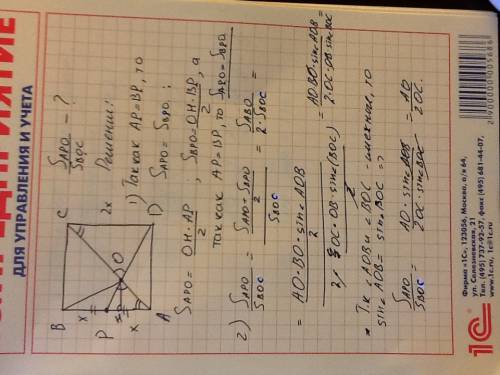 ПРИЯТИЕ
ДЛЯ УПРАВЛЕНИЯ И УЧЕТА
B C
x 2x
P O
x
A D
S_APO / S_BOC - ?
Решение:
1) Так как AP=BP, то
S_APO = S_BPO;
S_APO = OH·AP / 2; S_BPO = OH·BP / 2, а
так как AP=BP, то S_APO = S_BPO
2) S_APO / S_BOC = ((S_APO + S_BPO) / 2) / S_BOC = S_ABO / (2·S_BOC) =
= (AO·BO·sin∠AOB / 2) / (2·OC·OB·sin∠(BOC) / 2) = AO·BO·sin∠AOB / (2·OC·OB·sin∠BOC)
Т.к ∠AOB и ∠BOC - смежные, то
sin∠AOB = sin∠BOC =>
S_APO / S_BOC = AO·sin∠AOB / (2OC·sin∠BOC) = AO / 2OC.
1С
Фирма «1С», 123056, Москва, а/я 64,
ул. Селезневская, 21
тел. (495) 737-92-57, факс (495) 681-44-07,
www.1c.ru, 1c@1c.ru